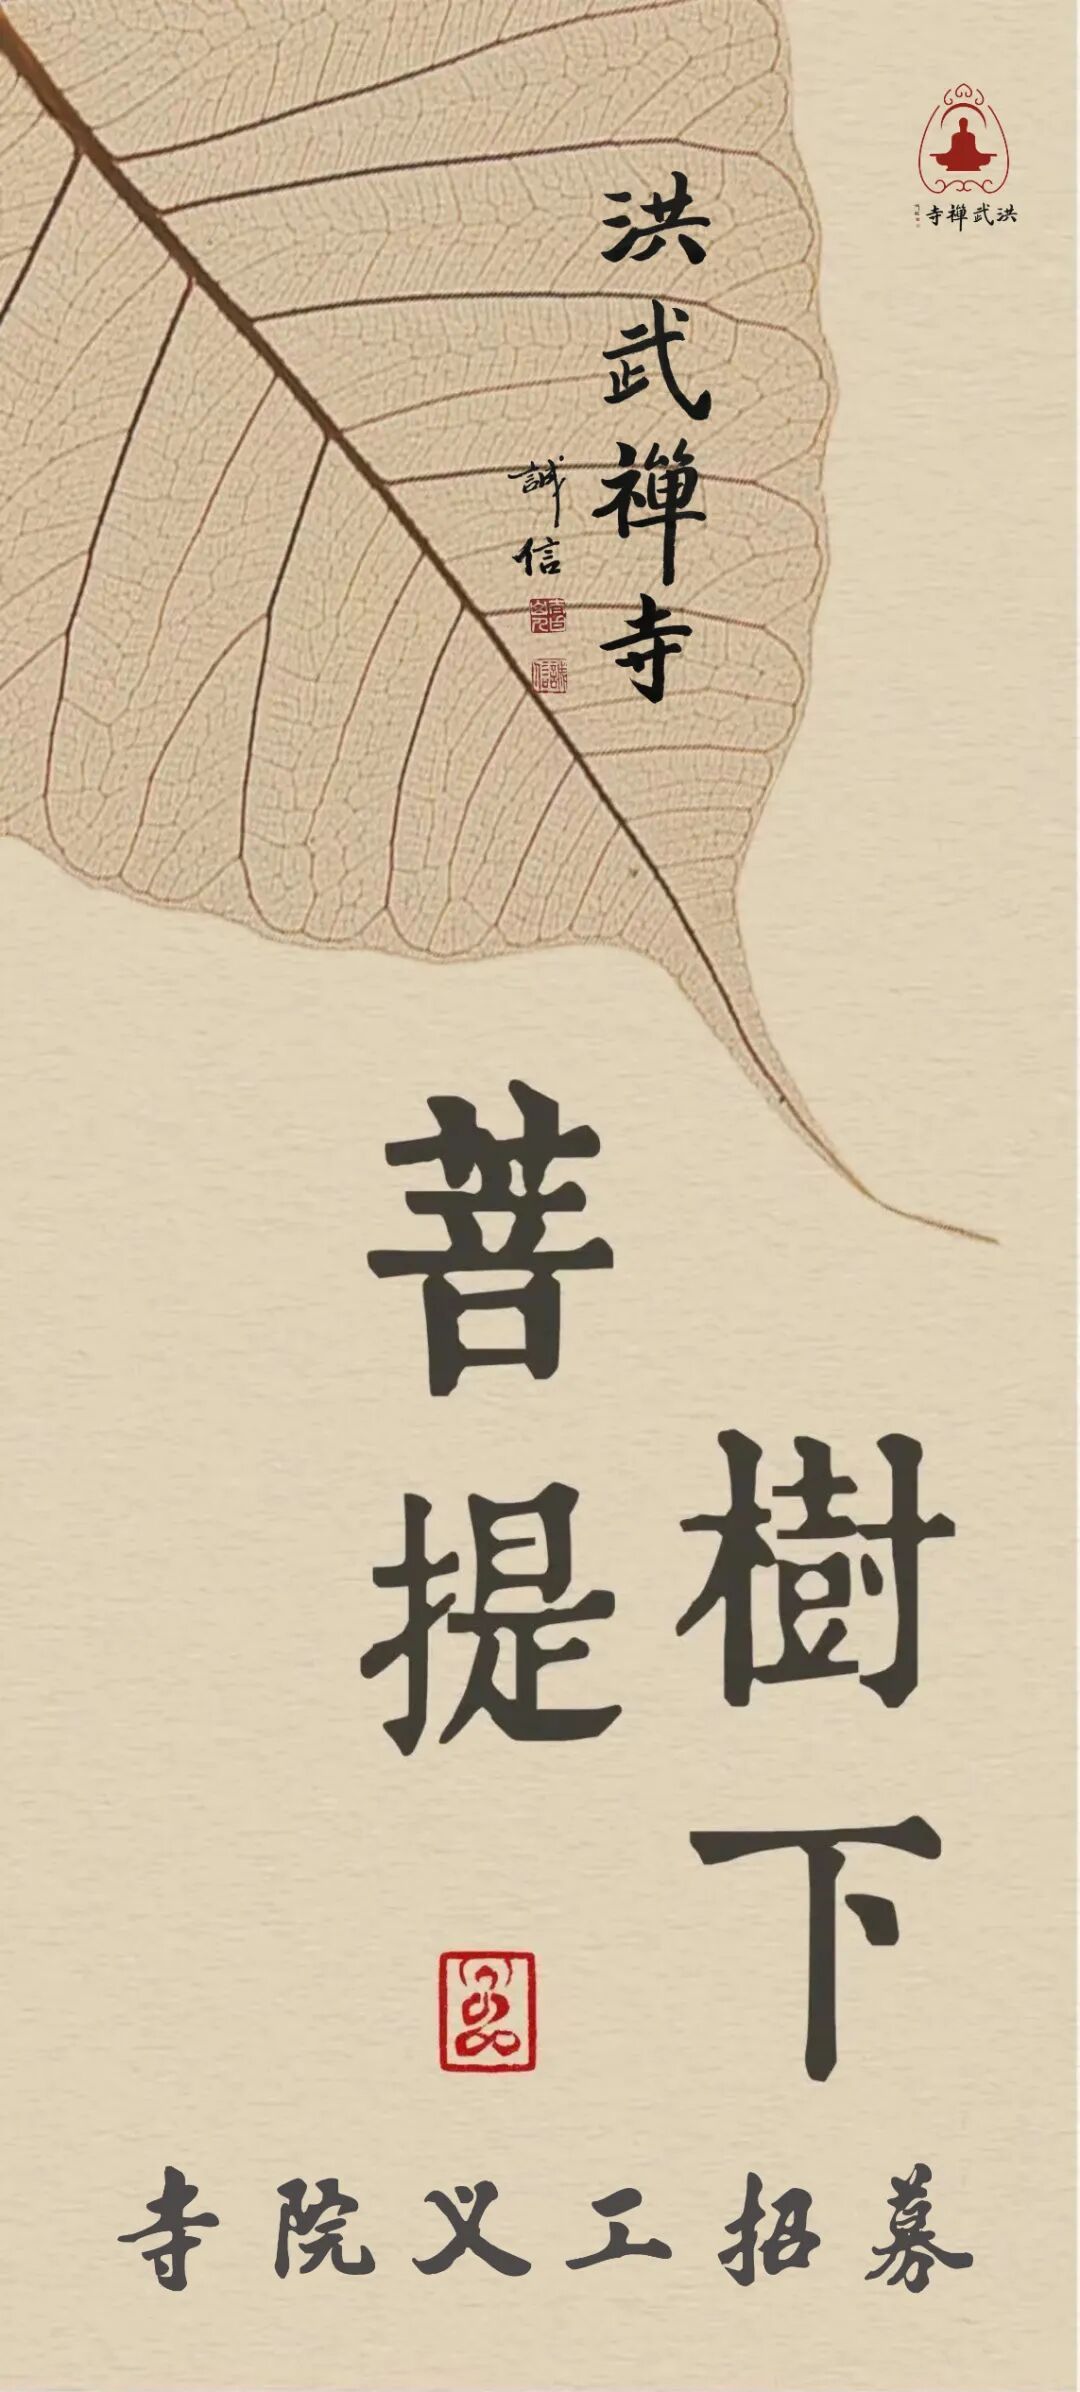 洪武禅寺
洪武禪寺
誠信
誠信
菩提
樹下
寺院义工招募